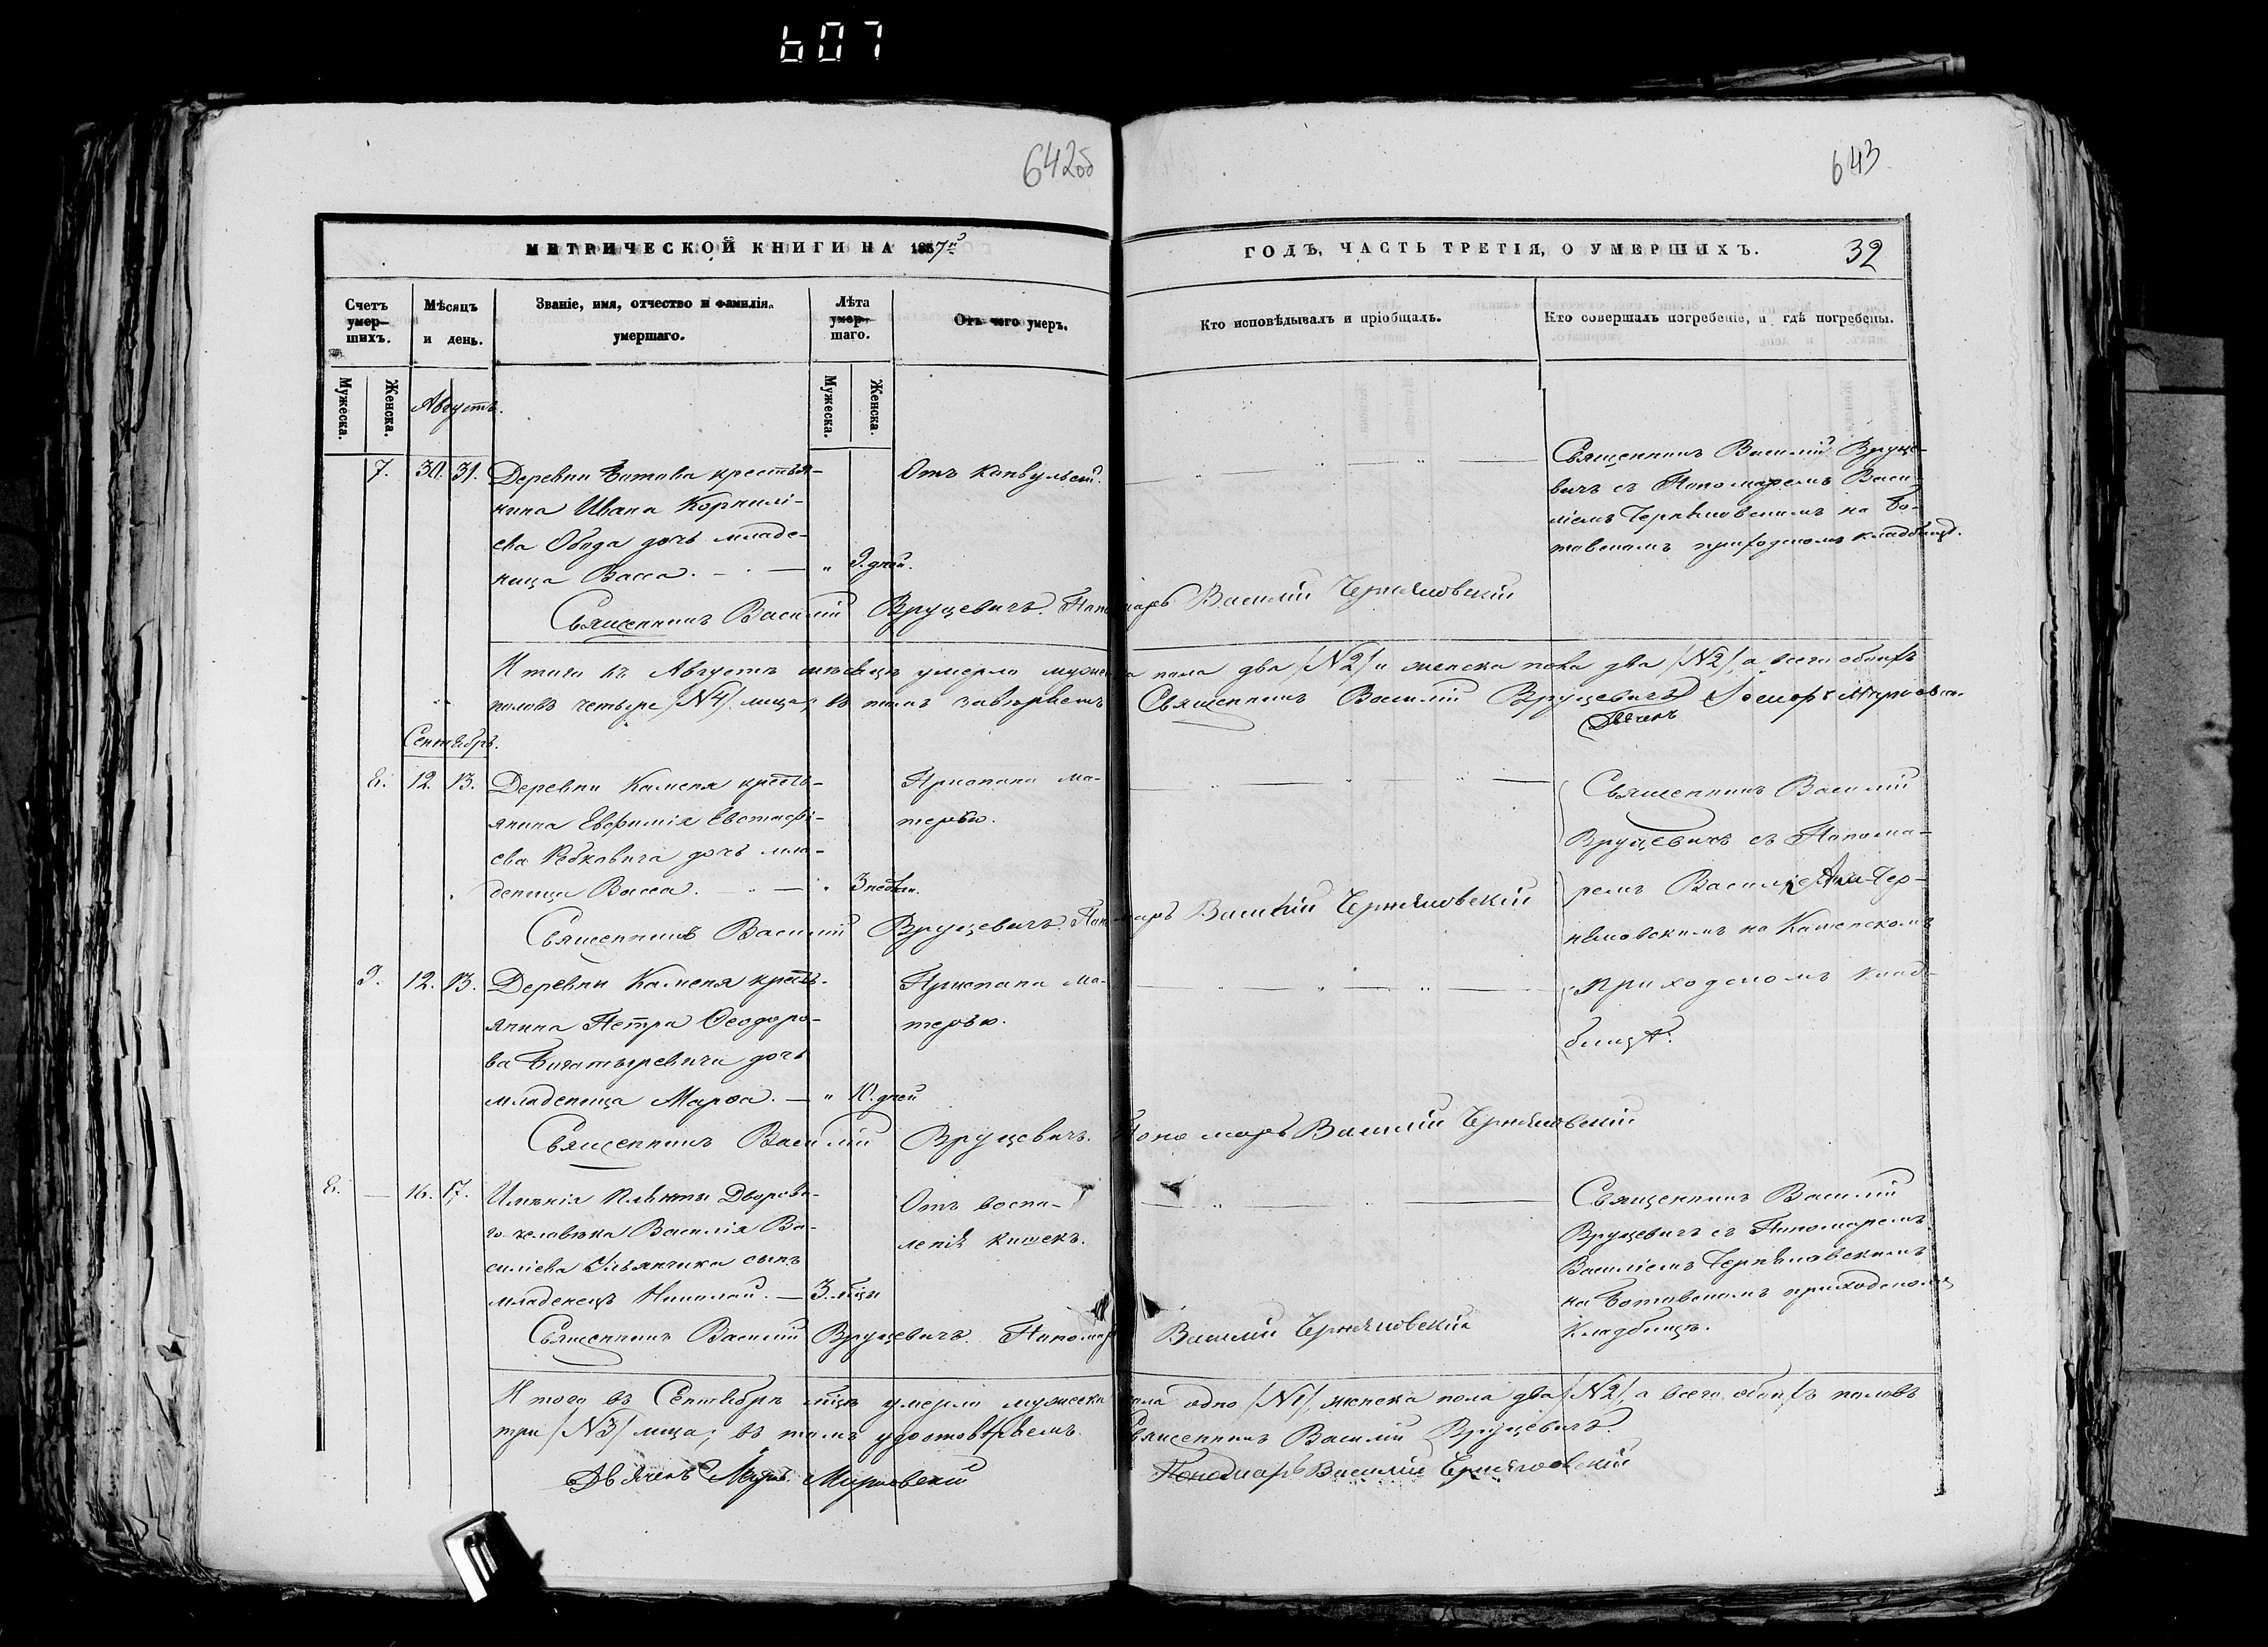 607
642об
643
МЕТРИЧЕСКОЙ КНИГИ НА 1857й
ГОДЪ, ЧАСТЬ ТРЕТІЯ, О УМЕРШИХЪ.
32
Счетъ умер-шихъ.
Мѣсяцъ и день.
Званіе, имя, отчество и фамилія умершаго.
Лѣта умер-шаго.
Отъ чего умеръ.
Кто исповѣдывалъ и пріобщалъ.
Кто совершалъ погребеніе, и гдѣ погребены.
Мужеска.
Женска.
Мужеска.
Женска.
Августъ.
7. 30. 31.
Деревни Ботова крестья-
нина Ивана Корнилі-
ева дочь младе-
ница Васса. — „ 9. дней.
Отъ конвульсій.
Священникъ Василій Вруце-
вичъ съ Пономаремъ Васи-
ліемъ Черняковскимъ на Бо-
товскомъ приходскомъ кладбищѣ.
Священникъ Василій Вруцевичъ. Пономарь Василій Черняковскій
Итого въ Августѣ мѣсяцѣ умерло мужеска пола два /№2/ и женска пола два /№2/, а всего обоихъ
половъ четыре /№4/ лица; въ томъ завѣряемъ Священникъ Василій Вруцевичъ
Дьячекъ
Сентябрь.
8. 12. 13.
Деревни Каменя кресть-
янина Евфимія Евстафі-
ева дочь мла-
деница Васса. — „ 3 недѣли.
Приспана ма-
терью.
Священникъ Василій
Вруцевичъ съ Понома-
ремъ Василіемъ Чер-
няковскимъ на Каменскомъ
приходскомъ клад-
бищѣ.
Священникъ Василій Вруцевичъ. Пономарь Василій Черняковскій
9. 12. 13.
Деревни Каменя кресть-
янина Петра Ѳеодоро-
ва Богатыревича дочь
младеница Марѳа. — „ 10. дней
Приспана ма-
терью.
Священникъ Василій Вруцевичъ. Пономарь Василій Черняковскій
8. — 16. 17.
Имѣнія Дворова-
го человѣка Василія Ва-
силіева сынъ
младенецъ Николай. — 3. мѣсяца
Отъ воспа-
ленія кишекъ.
Священникъ Василій
Вруцевичъ съ Пономаремъ
Василіемъ Черняковскимъ
на Ботовскомъ приходскомъ
кладбищѣ.
Священникъ Василій Вруцевичъ. Пономарь Василій Черняковскій
Итого въ Сентябрѣ мѣсяцѣ умерло мужеска пола одно /№1/ женска пола два /№2/, а всего обоихъ половъ
три /№3/ лица; въ томъ удостовѣряемъ. Священникъ Василій Вруцевичъ.
Дьячекъ
Пономарь Василій Черняковскій